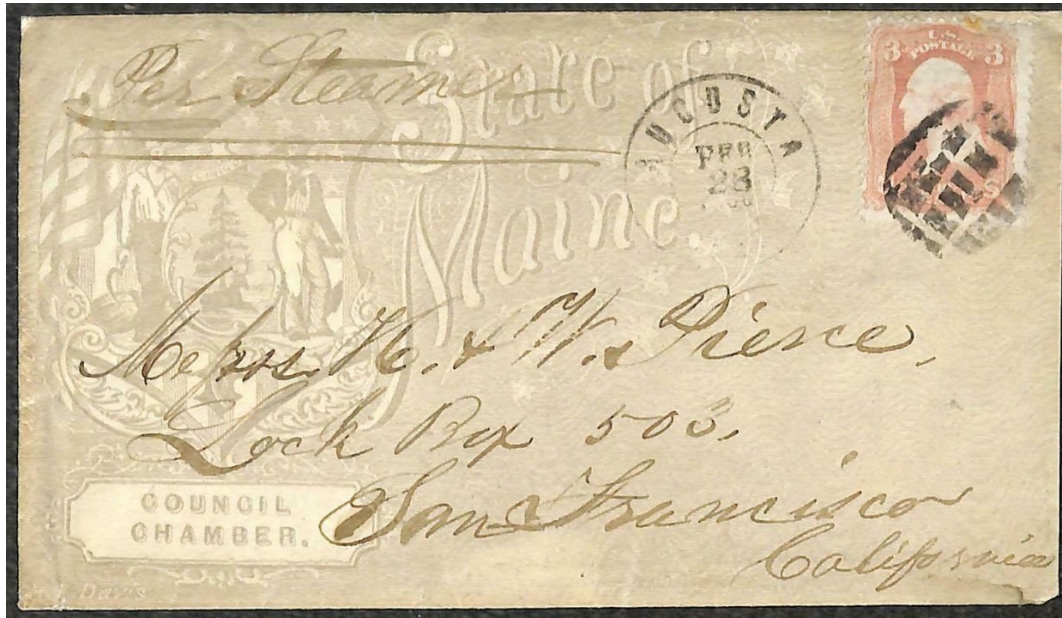 Per Steamer
State of
Maine.
AUGUSTA
FEB
28
U.S.
POSTAGE
3 3
Messrs. H. & W. Pierce,
Lock Box 503,
San Francisco
California
COUNCIL
CHAMBER.
Daws